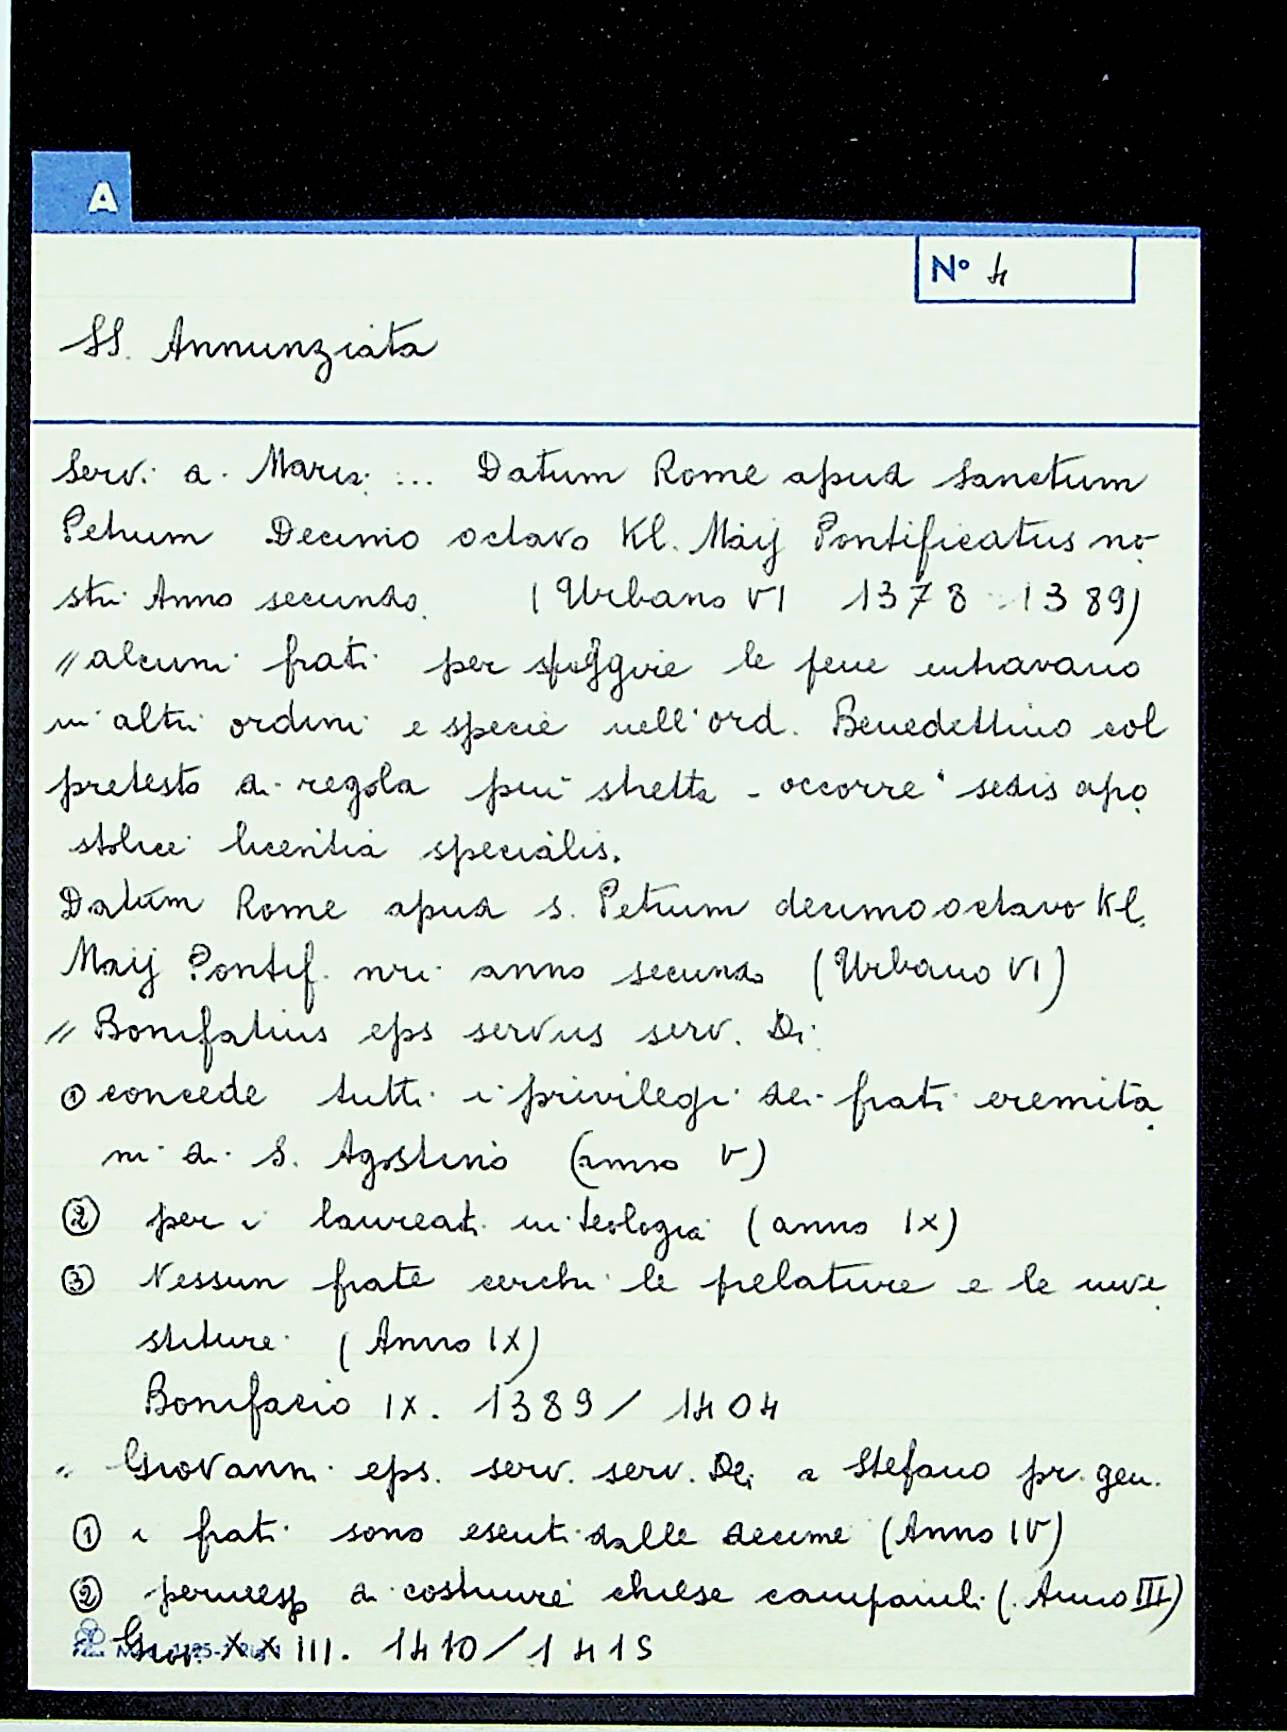 A
N° 4
SS. Annunziata
Serv. a. Marie ... Datum Rome apud Sanctum
Petrum Decimo octavo Kl. Maij Pontificatus no
stri Anno secundo. (Urbano VI 1378-1389)
// alcuni frati per sfuggire le pene entravano
in altri ordini e specie nell'ord. Benedettino col
pretesto di regola più stretta - occorre "sedis apo
stolice licentia specialis.
Datum Rome apud s. Petrum decimo octavo Kl.
Maij Pontif. nri anno secundo (Urbano VI)
// Bonifatius eps servus serv. Di
① concede tutti i privilegi dei frati eremita
ni di S. Agostino (anno V)
② per i laureati in teologia (anno IX)
③ Nessun frate cerchi le prelature e le inve
stiture (Anno IX)
Bonifacio IX. 1389/1404
" Giovanni eps. serv. serv. Di a Stefano pr. gen.
① i frati sono esenti dalle decime (Anno IV)
② di costruire chiese campanili (Anno III)
Giov. XXIII. 1410/1415